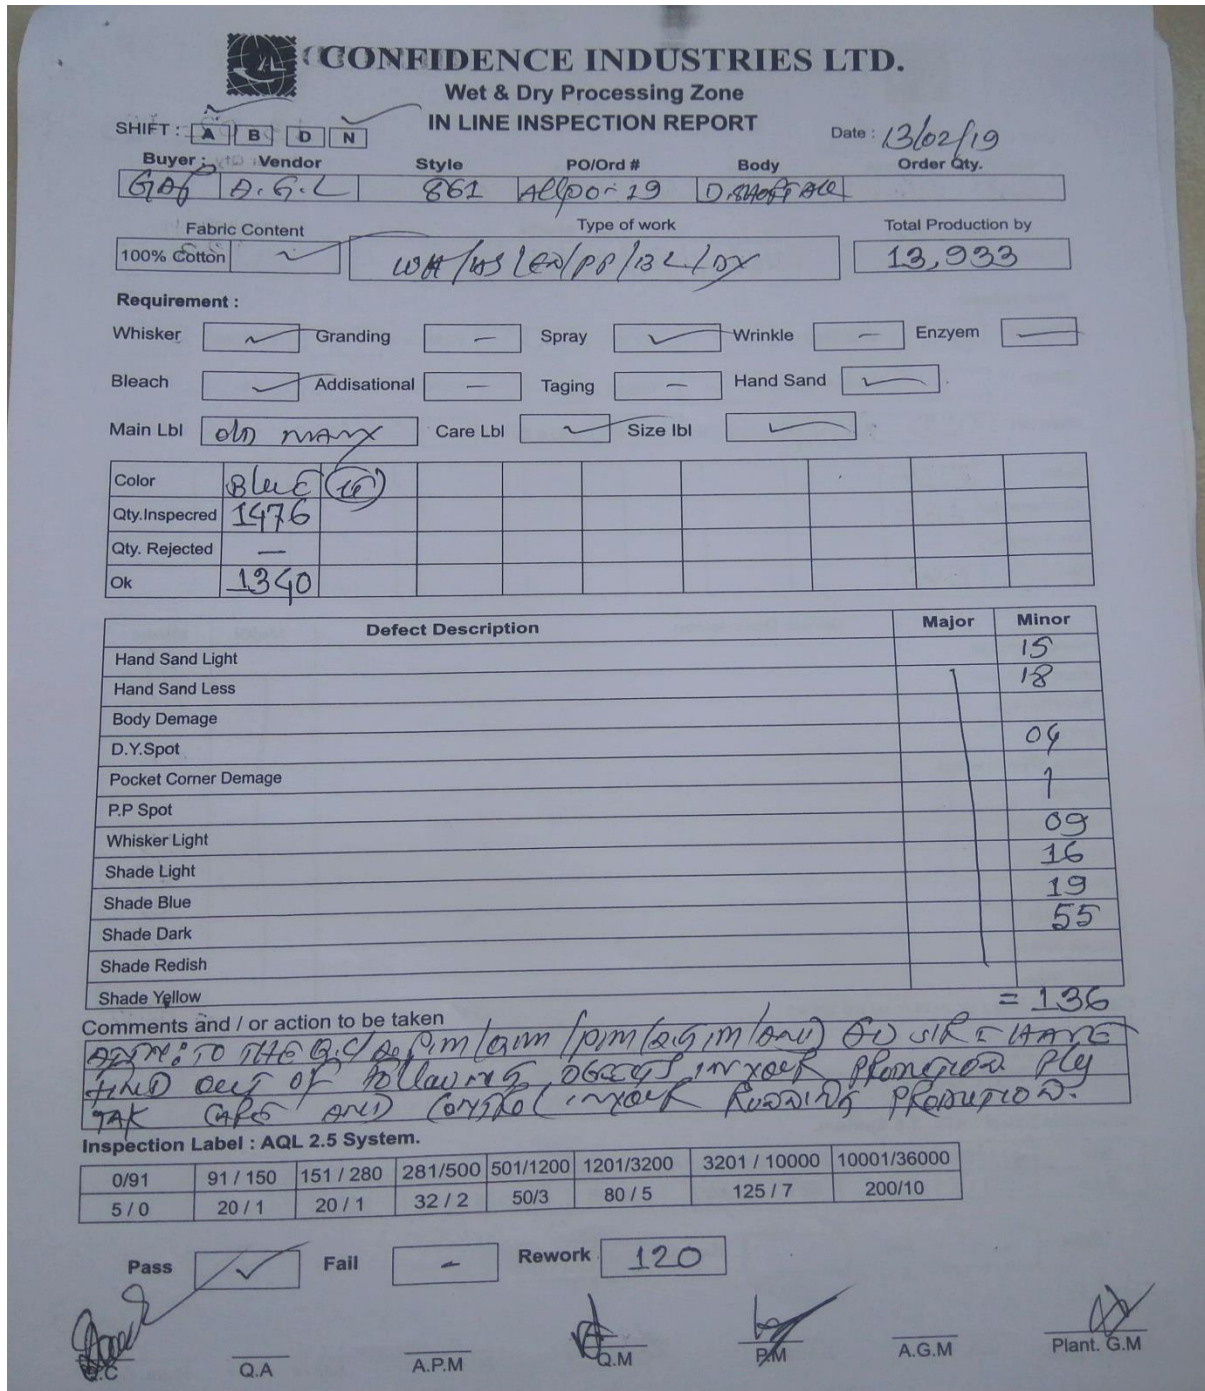 CONFIDENCE INDUSTRIES LTD.
Wet & Dry Processing Zone
IN LINE INSPECTION REPORT
SHIFT : A B D N
Date : 13/02/19
Buyer : Vendor Style PO/Ord # Body Order Qty.
GAP A.G.L 861 19
Fabric Content Type of work Total Production by
100% Cotton WH/HS/EN/PP/BL/DX 13,933
Requirement :
Whisker Granding - Spray Wrinkle - Enzyem
Bleach Addisational - Taging - Hand Sand
Main Lbl old Care Lbl Size lbl
Color BluE
Qty.Inspecred 1476
Qty. Rejected -
Ok 1340
Defect Description Major Minor
Hand Sand Light 15
Hand Sand Less 18
Body Demage
D.Y.Spot 04
Pocket Corner Demage 1
P.P Spot 09
Whisker Light 16
Shade Light 19
Shade Blue 55
Shade Dark
Shade Redish
Shade Yellow = 136
Comments and / or action to be taken
TO THE SIR I HAVE
FIND OUT OF Following IN
TAK CARE AND CONTROL PRODUTION.
Inspection Label : AQL 2.5 System.
0/91 91 / 150 151 / 280 281/500 501/1200 1201/3200 3201 / 10000 10001/36000
5 / 0 20 / 1 20 / 1 32 / 2 50/3 80 / 5 125 / 7 200/10
Pass Fail - Rework 120
Q.C Q.A A.P.M Q.M P.M A.G.M Plant. G.M